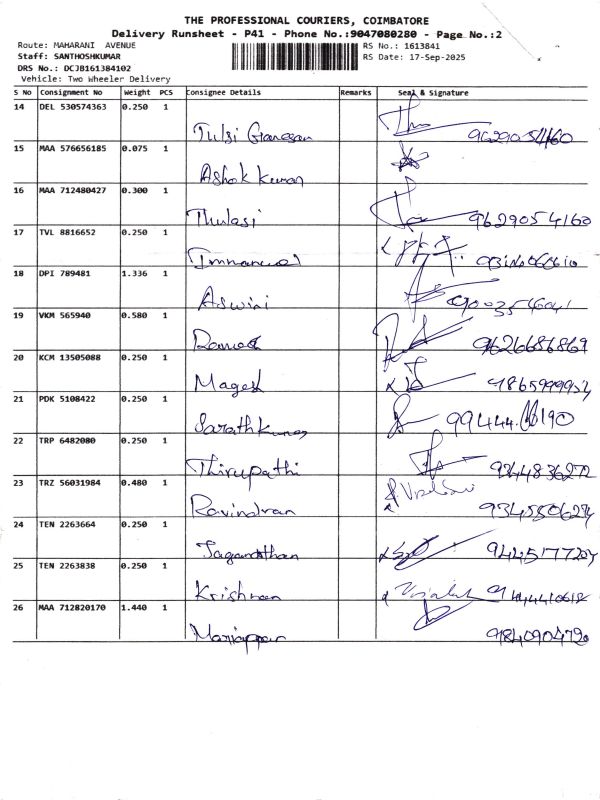 THE PROFESSIONAL COURIERS, COIMBATORE
Delivery Runsheet - P41 - Phone No.:9047080280 - Page No.:2
Route: MAHARANI AVENUE RS No.: 1613841
Staff: SANTHOSHKUMAR RS Date: 17-Sep-2025
DRS No.: DCJB161384102
Vehicle: Two Wheeler Delivery
S No Consignment No Weight PCS Consignee Details Remarks Seal & Signature
14 DEL 530574363 0.250 1
Tulsi Ganesan
15 MAA 576656185 0.075 1
Ashok kumar
16 MAA 712480427 0.300 1
Thulasi 9629054160
17 TVL 8816652 0.250 1
Immanuel
18 DPI 789481 1.336 1
Aswini
19 VKM 565940 0.580 1
Ramesh 9626686869
20 KCM 13505088 0.250 1
Magesh
21 PDK 5108422 0.250 1
Sarathkumar
22 TRP 6482080 0.250 1
Thirupathi 9344836272
23 TRZ 56031984 0.480 1
Ravindran
24 TEN 2263664 0.250 1
Jaganathan
25 TEN 2263838 0.250 1
Krishnan
26 MAA 712820170 1.440 1
Mariappan